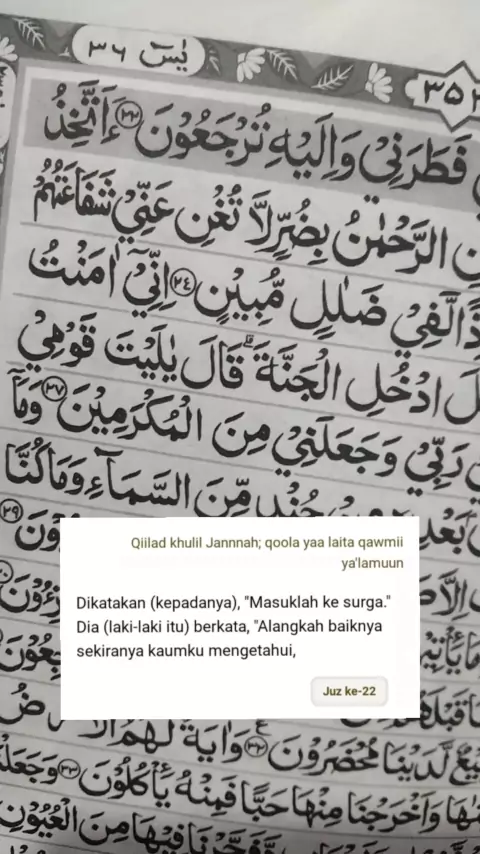 يٰسٓ ٣٦
٣٥٣
فَطَرَنِيْ وَاِلَيْهِ تُرْجَعُوْنَ ٢٢ ءَاَتَّخِذُ
الرَّحْمٰنُ بِضُرٍّ لَّا تُغْنِ عَنِّيْ شَفَاعَتُهُمْ
لَّفِيْ ضَلٰلٍ مُّبِيْنٍ ٢٤ اِنِّيْٓ اٰمَنْتُ
ادْخُلِ الْجَنَّةَ ۗ قَالَ يٰلَيْتَ قَوْمِيْ
رَبِّيْ وَجَعَلَنِيْ مِنَ الْمُكْرَمِيْنَ ٢٧ وَمَآ
مِّنَ السَّمَاۤءِ وَمَا كُنَّا
٢٩
Qiilad khulil Jannnah; qoola yaa laita qawmii
ya'lamuun
Dikatakan (kepadanya), "Masuklah ke surga."
Dia (laki-laki itu) berkata, "Alangkah baiknya
sekiranya kaumku mengetahui,
Juz ke-22
لَّدَيْنَا مُحْضَرُوْنَ ٣٢ وَاٰيَةٌ لَّهُمُ الْاَرْضُ
وَاَخْرَجْنَا مِنْهَا حَبًّا فَمِنْهُ يَأْكُلُوْنَ ٣٣ وَجَعَلْنَا
وَّفَجَّرْنَا فِيْهَا مِنَ الْعُيُوْنِ